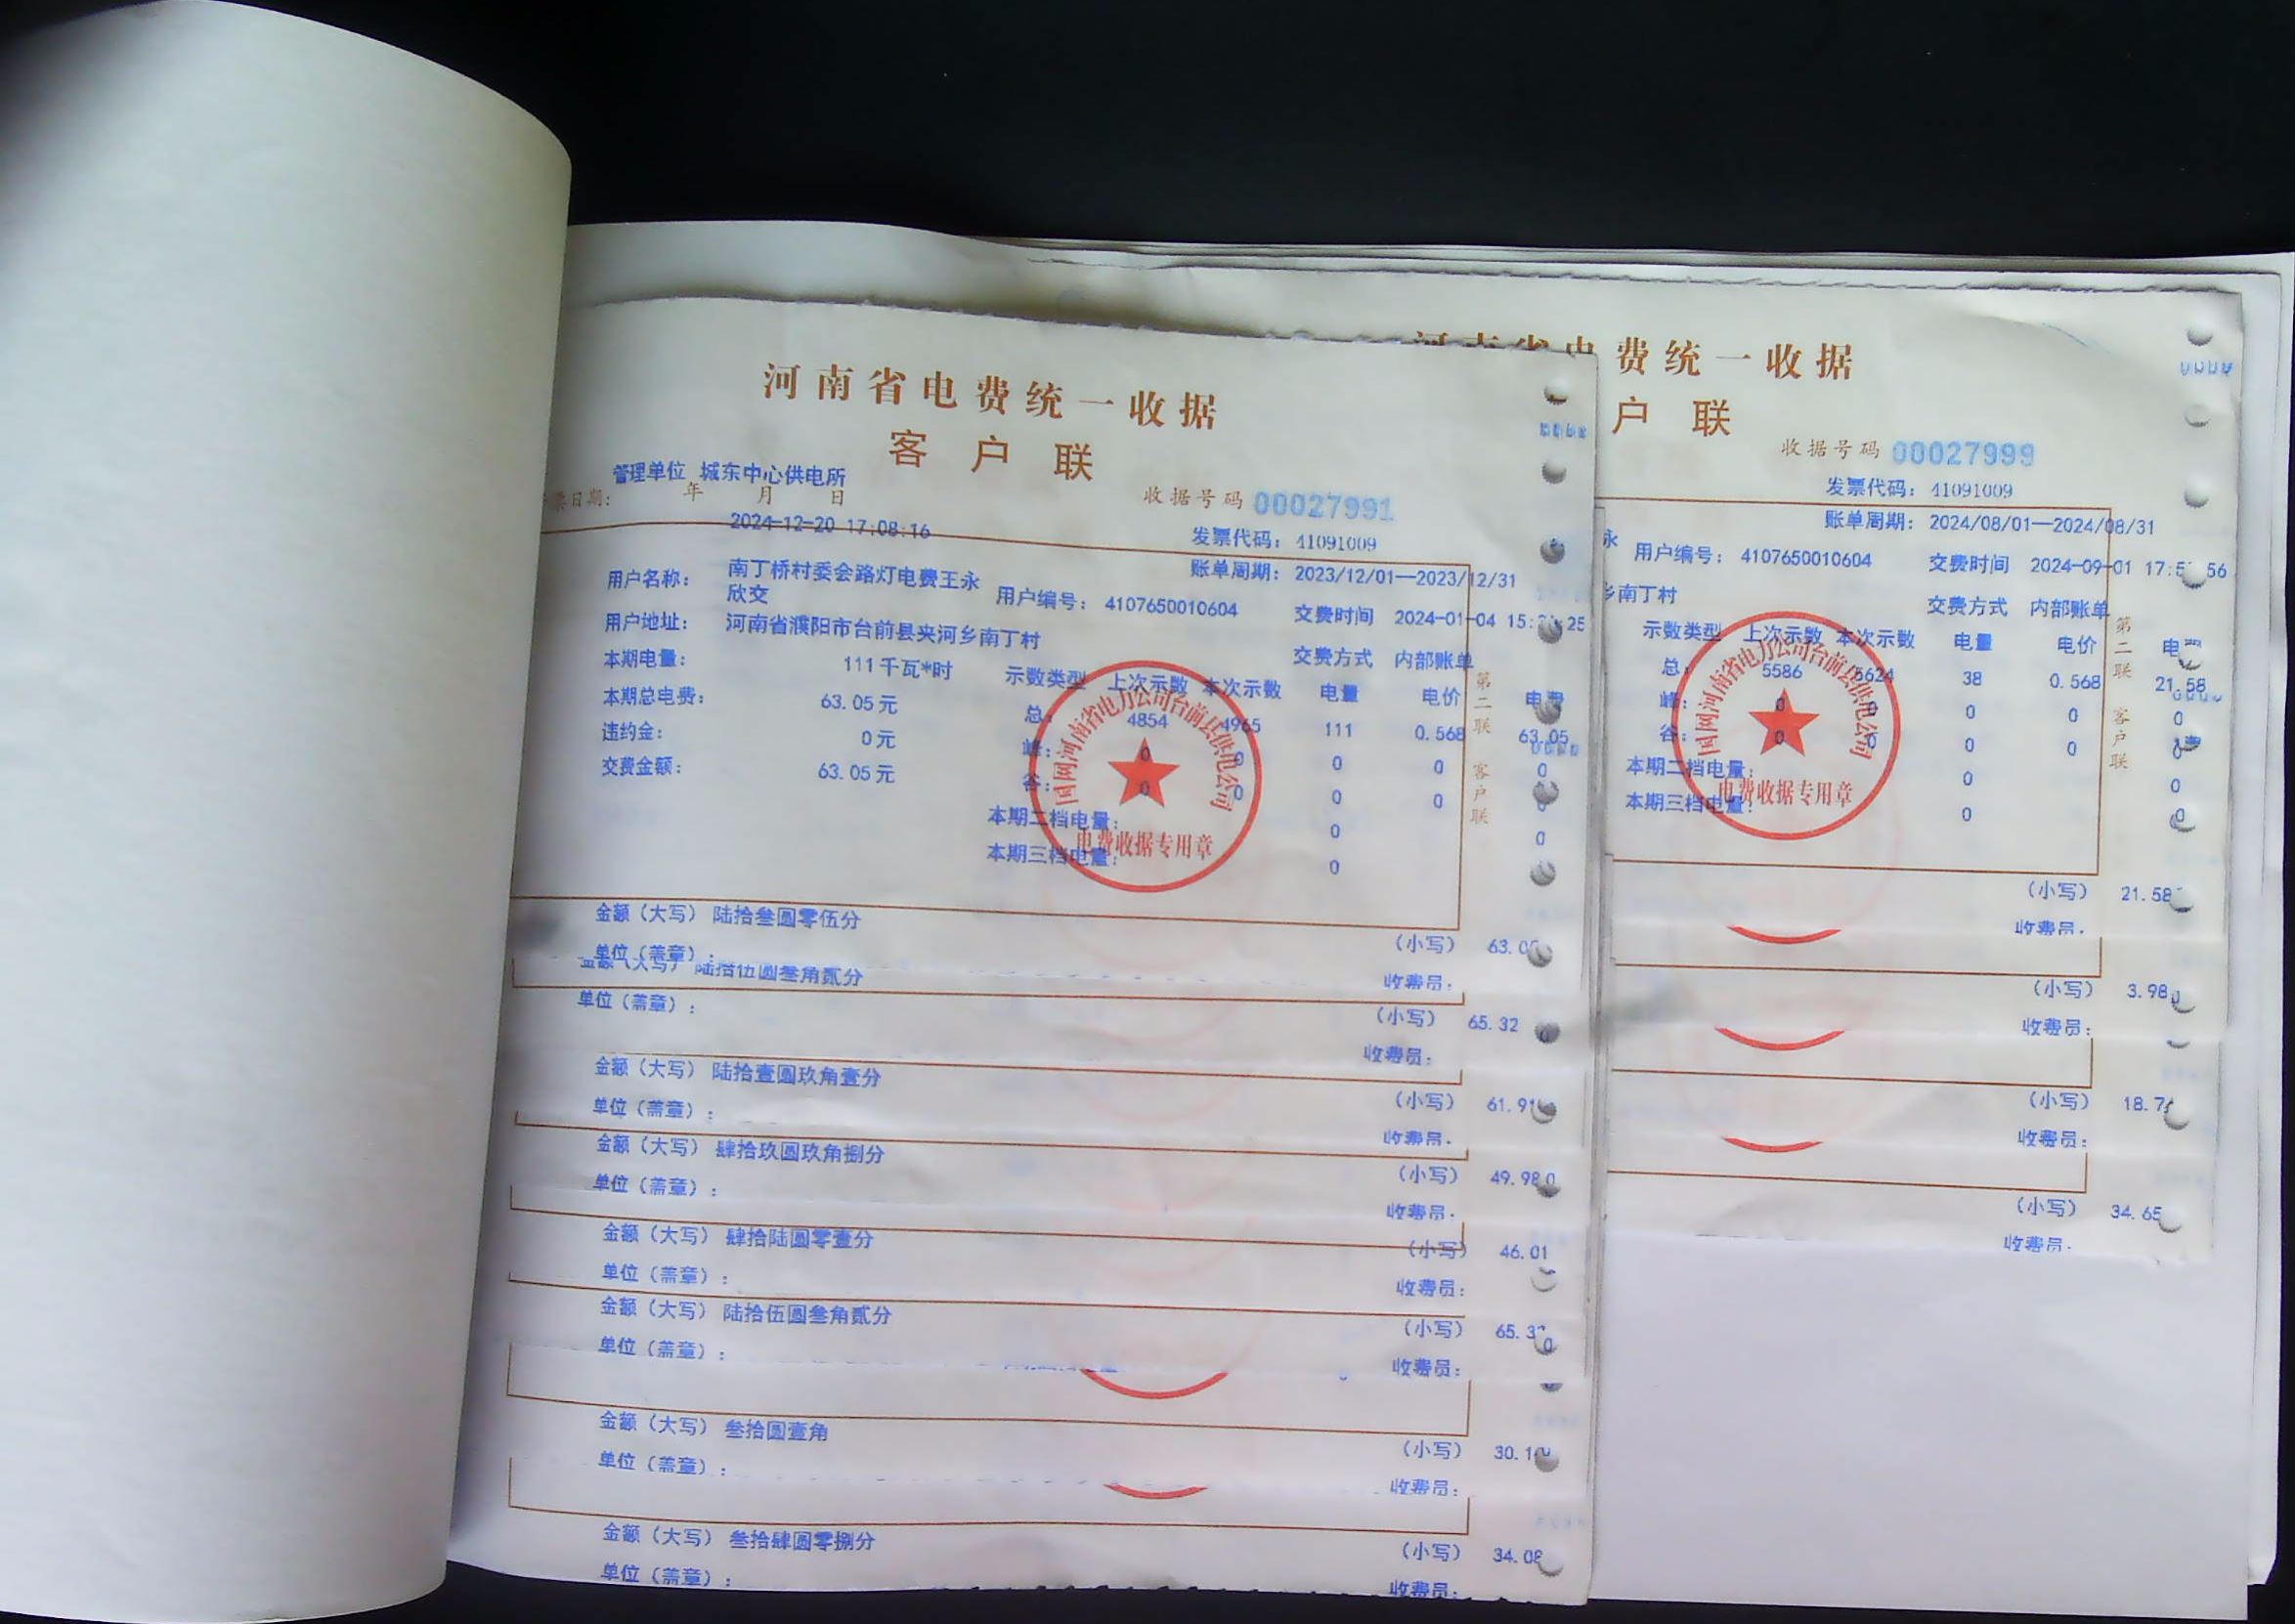 河南省电费统一收据
客户联
管理单位 城东中心供电所
票日期: 年 月 日
收据号码 00027991
2024-12-20 17:08:16
发票代码: 41091009
账单周期: 2023/12/01—2023/12/31
用户名称: 南丁桥村委会路灯电费王永欣交
用户编号: 4107650010604
交费时间 2024-01-04 15: 25
用户地址: 河南省濮阳市台前县夹河乡南丁村
交费方式 内部账单
本期电量: 111千瓦*时
示数类型 上次示数 本次示数 电量 电价 电费
本期总电费: 63.05元
总: 4854 4965 111 0.568 63.05
违约金: 0元
峰: 0 0 0 0 0
交费金额: 63.05元
谷: 0 0 0 0 0
本期二档电量: 0 0
本期三档电量: 0
国网河南省电力公司台前县供电公司
电费收据专用章
第二联 客户联
金额(大写) 陆拾叁圆零伍分
(小写) 63.0
单位(盖章):
收费员:
金额(大写) 陆拾伍圆叁角贰分
(小写) 65.32
单位(盖章):
收费员:
金额(大写) 陆拾壹圆玖角壹分
(小写) 61.91
单位(盖章):
收费员:
金额(大写) 肆拾玖圆玖角捌分
(小写) 49.98
单位(盖章):
收费员:
金额(大写) 肆拾陆圆零壹分
(小写) 46.01
单位(盖章):
收费员:
金额(大写) 陆拾伍圆叁角贰分
(小写) 65.3
单位(盖章):
收费员:
金额(大写) 叁拾圆壹角
(小写) 30.1
单位(盖章):
收费员:
金额(大写) 叁拾肆圆零捌分
(小写) 34.08
单位(盖章):
收费员:
河南省电费统一收据
户联
收据号码 00027999
发票代码: 41091009
账单周期: 2024/08/01—2024/08/31
永 用户编号: 4107650010604
交费时间 2024-09-01 17:5 56
乡南丁村
交费方式 内部账单
示数类型 上次示数 本次示数 电量 电价 电
总: 5586 5624 38 0.568 21.58
峰: 0 0 0 0 0
谷: 0 0 0 0 0
本期二档电量: 0 0
本期三档电量: 0 0
国网河南省电力公司台前县供电公司
电费收据专用章
第二联 客户联
(小写) 21.58
收费员:
(小写) 3.98
收费员:
(小写) 18.7
收费员:
(小写) 34.65
收费员: